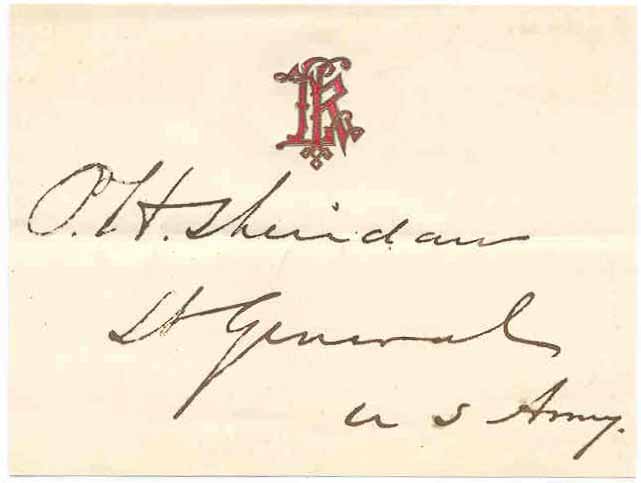 P. H. Sheridan
Lt General
U S Army.